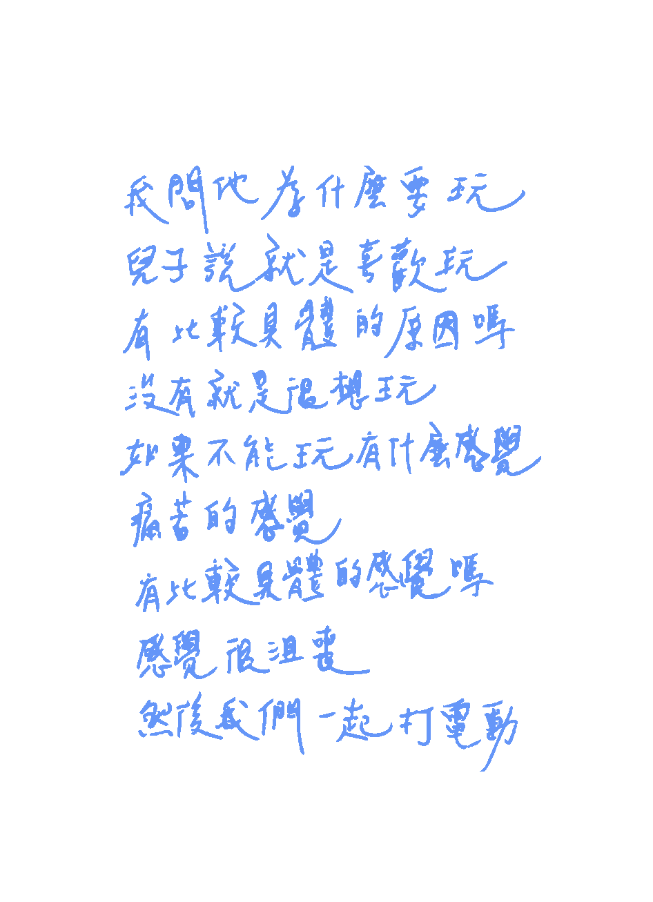 我問他為什麼要玩
兒子說就是喜歡玩
有比較具體的原因嗎
沒有就是很想玩
如果不能玩有什麼感覺
痛苦的感覺
有比較具體的感覺嗎
感覺很沮喪
然後我們一起打電動